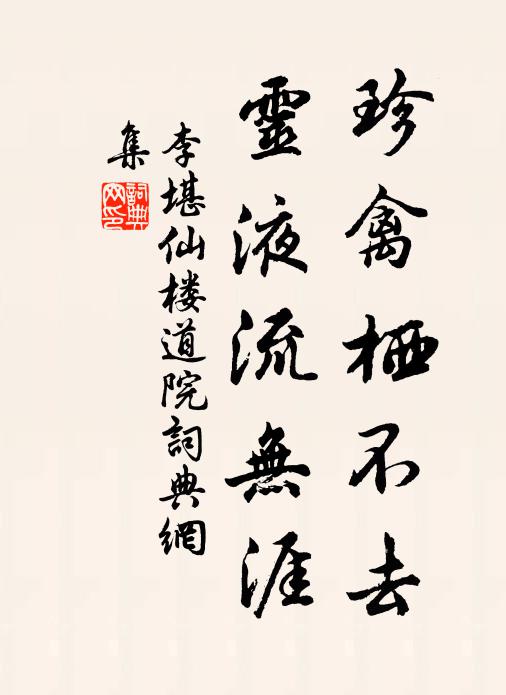 珍禽栖不去
靈液流無涯
李堪仙楼道院詞典網
集
詞典网印